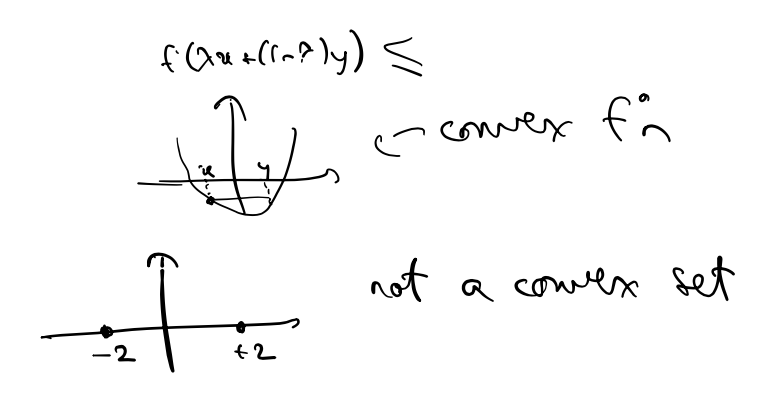 f(λx+(1-λ)y) ≤
convex fn
x y
not a convex set
-2 +2